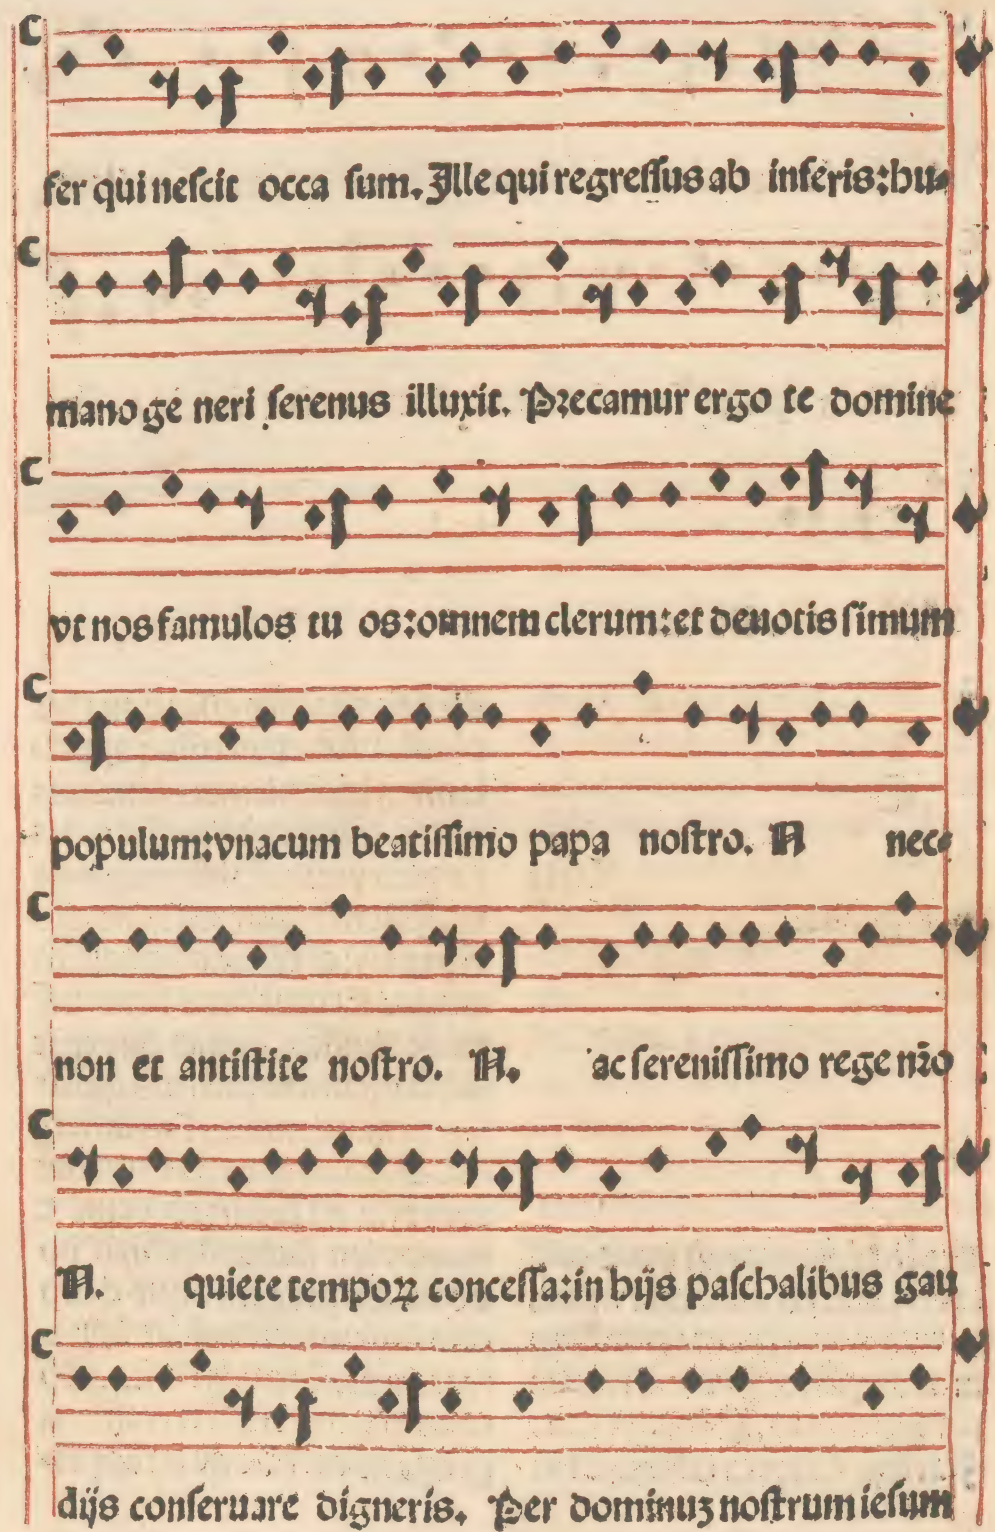 fer qui neſcit occa ſum. Ille qui regreſſus ab inferis: hu-
mano ge neri ſerenus illuxit. Precamur ergo te domine
vt nos famulos tu os: omnem clerum: et deuotis ſimum
populum: vnacum beatiſſimo papa noſtro. N nec-
non et antiſtite noſtro. N. ac ſereniſſimo rege nr̄o
N. quiete tempoꝝ conceſſa: in hijs paſchalibus gau
dijs conſeruare digneris. Per dominuʒ noſtrum ieſum